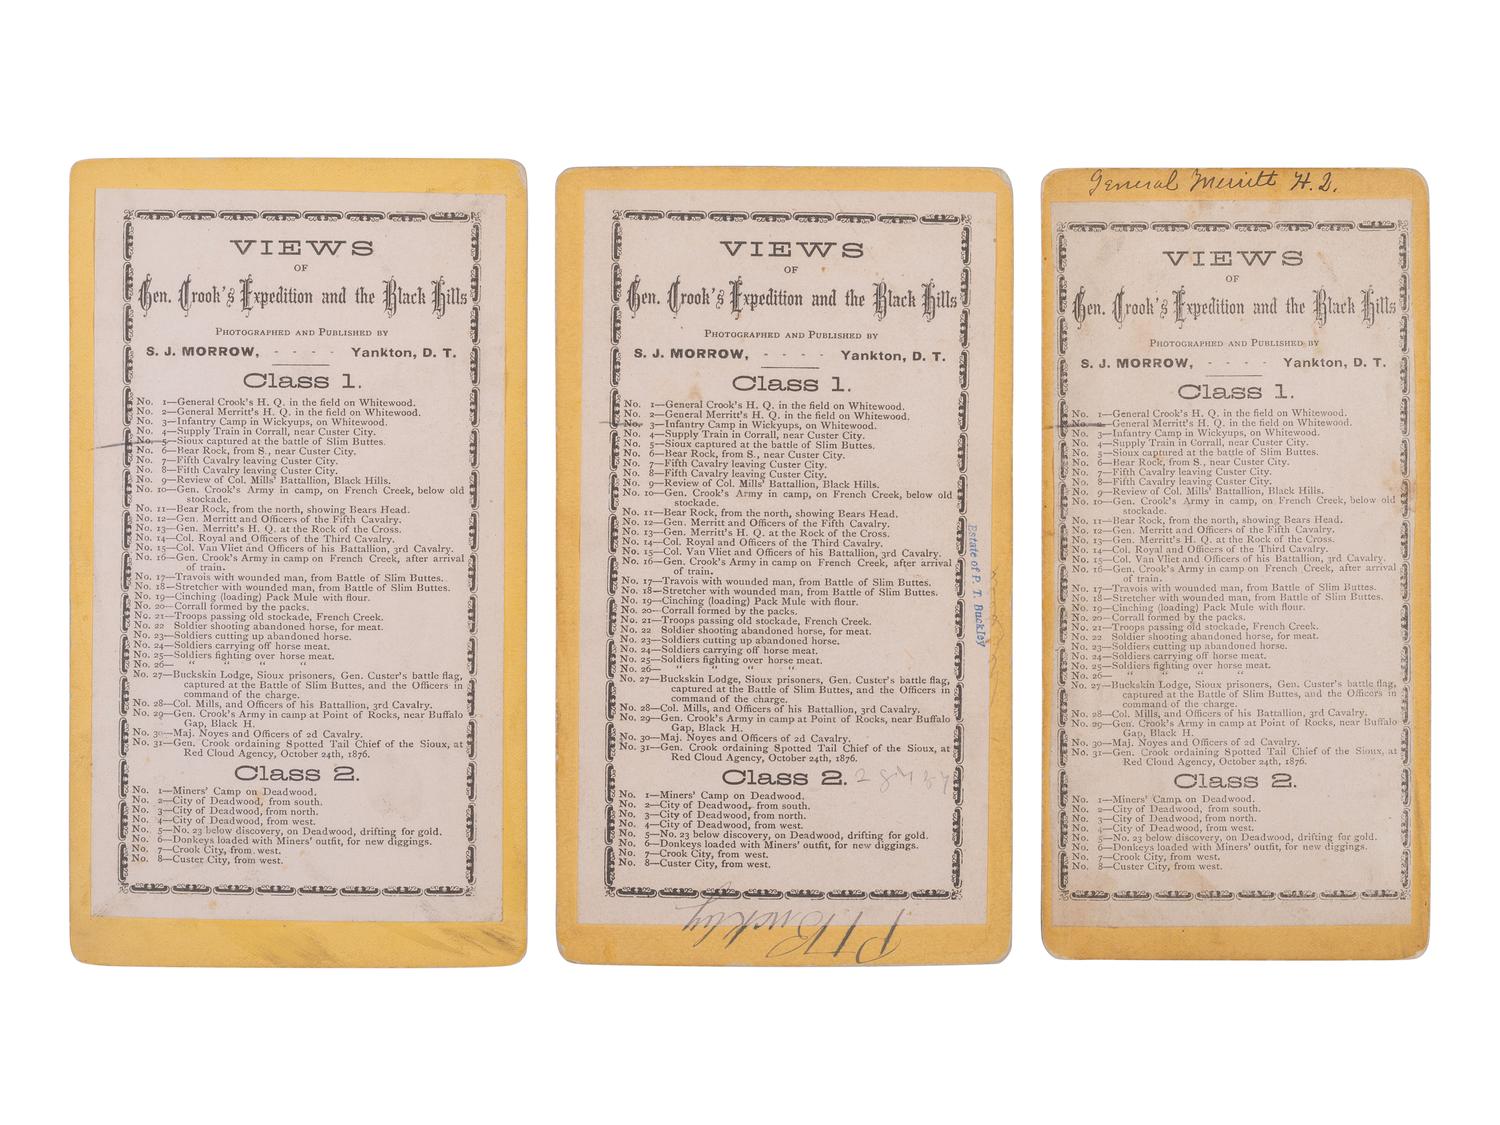 VIEWS
OF
Gen. Crook's Expedition and the Black Hills
PHOTOGRAPHED AND PUBLISHED BY
S. J. MORROW, - - - - Yankton, D. T.
Class 1.
No. 1—General Crook's H. Q. in the field on Whitewood.
No. 2—General Merritt's H. Q. in the field on Whitewood.
No. 3—Infantry Camp in Wickyups, on Whitewood.
No. 4—Supply Train in Corrall, near Custer City.
No. 5—Sioux captured at the battle of Slim Buttes.
No. 6—Bear Rock, from S., near Custer City.
No. 7—Fifth Cavalry leaving Custer City.
No. 8—Fifth Cavalry leaving Custer City.
No. 9—Review of Col. Mills' Battallion, Black Hills.
No. 10—Gen. Crook's Army in camp, on French Creek, below old
stockade.
No. 11—Bear Rock, from the north, showing Bears Head.
No. 12—Gen. Merritt and Officers of the Fifth Cavalry.
No. 13—Gen. Merritt's H. Q. at the Rock of the Cross.
No. 14—Col. Royal and Officers of the Third Cavalry.
No. 15—Col. Van Vliet and Officers of his Battallion, 3rd Cavalry.
No. 16—Gen. Crook's Army in camp on French Creek, after arrival
of train.
No. 17—Travois with wounded man, from Battle of Slim Buttes.
No. 18—Stretcher with wounded man, from Battle of Slim Buttes.
No. 19—Cinching (loading) Pack Mule with flour.
No. 20—Corrall formed by the packs.
No. 21—Troops passing old stockade, French Creek.
No. 22 Soldier shooting abandoned horse, for meat.
No. 23—Soldiers cutting up abandoned horse.
No. 24—Soldiers carrying off horse meat.
No. 25—Soldiers fighting over horse meat.
No. 26— " " " "
No. 27—Buckskin Lodge, Sioux prisoners, Gen. Custer's battle flag,
captured at the Battle of Slim Buttes, and the Officers in
command of the charge.
No. 28—Col. Mills, and Officers of his Battallion, 3rd Cavalry.
No. 29—Gen. Crook's Army in camp at Point of Rocks, near Buffalo
Gap, Black H.
No. 30—Maj. Noyes and Officers of 2d Cavalry.
No. 31—Gen. Crook ordaining Spotted Tail Chief of the Sioux, at
Red Cloud Agency, October 24th, 1876.
Class 2.
No. 1—Miners' Camp on Deadwood.
No. 2—City of Deadwood, from south.
No. 3—City of Deadwood, from north.
No. 4—City of Deadwood, from west.
No. 5—No. 23 below discovery, on Deadwood, drifting for gold.
No. 6—Donkeys loaded with Miners' outfit, for new diggings.
No. 7—Crook City, from west.
No. 8—Custer City, from west.
VIEWS
OF
Gen. Crook's Expedition and the Black Hills
PHOTOGRAPHED AND PUBLISHED BY
S. J. MORROW, - - - - Yankton, D. T.
Class 1.
No. 1—General Crook's H. Q. in the field on Whitewood.
No. 2—General Merritt's H. Q. in the field on Whitewood.
No. 3—Infantry Camp in Wickyups, on Whitewood.
No. 4—Supply Train in Corrall, near Custer City.
No. 5—Sioux captured at the battle of Slim Buttes.
No. 6—Bear Rock, from S., near Custer City.
No. 7—Fifth Cavalry leaving Custer City.
No. 8—Fifth Cavalry leaving Custer City.
No. 9—Review of Col. Mills' Battallion, Black Hills.
No. 10—Gen. Crook's Army in camp, on French Creek, below old
stockade.
No. 11—Bear Rock, from the north, showing Bears Head.
No. 12—Gen. Merritt and Officers of the Fifth Cavalry.
No. 13—Gen. Merritt's H. Q. at the Rock of the Cross.
No. 14—Col. Royal and Officers of the Third Cavalry.
No. 15—Col. Van Vliet and Officers of his Battallion, 3rd Cavalry.
No. 16—Gen. Crook's Army in camp on French Creek, after arrival
of train.
No. 17—Travois with wounded man, from Battle of Slim Buttes.
No. 18—Stretcher with wounded man, from Battle of Slim Buttes.
No. 19—Cinching (loading) Pack Mule with flour.
No. 20—Corrall formed by the packs.
No. 21—Troops passing old stockade, French Creek.
No. 22 Soldier shooting abandoned horse, for meat.
No. 23—Soldiers cutting up abandoned horse.
No. 24—Soldiers carrying off horse meat.
No. 25—Soldiers fighting over horse meat.
No. 26— " " " "
No. 27—Buckskin Lodge, Sioux prisoners, Gen. Custer's battle flag,
captured at the Battle of Slim Buttes, and the Officers in
command of the charge.
No. 28—Col. Mills, and Officers of his Battallion, 3rd Cavalry.
No. 29—Gen. Crook's Army in camp at Point of Rocks, near Buffalo
Gap, Black H.
No. 30—Maj. Noyes and Officers of 2d Cavalry.
No. 31—Gen. Crook ordaining Spotted Tail Chief of the Sioux, at
Red Cloud Agency, October 24th, 1876.
Class 2.
No. 1—Miners' Camp on Deadwood.
No. 2—City of Deadwood, from south.
No. 3—City of Deadwood, from north.
No. 4—City of Deadwood, from west.
No. 5—No. 23 below discovery, on Deadwood, drifting for gold.
No. 6—Donkeys loaded with Miners' outfit, for new diggings.
No. 7—Crook City, from west.
No. 8—Custer City, from west.
Estate of P. T. Buckley
P T Buckley
General Merritt H. Q.
VIEWS
OF
Gen. Crook's Expedition and the Black Hills
PHOTOGRAPHED AND PUBLISHED BY
S. J. MORROW, - - - - Yankton, D. T.
Class 1.
No. 1—General Crook's H. Q. in the field on Whitewood.
No. 2—General Merritt's H. Q. in the field on Whitewood.
No. 3—Infantry Camp in Wickyups, on Whitewood.
No. 4—Supply Train in Corrall, near Custer City.
No. 5—Sioux captured at the battle of Slim Buttes.
No. 6—Bear Rock, from S., near Custer City.
No. 7—Fifth Cavalry leaving Custer City.
No. 8—Fifth Cavalry leaving Custer City.
No. 9—Review of Col. Mills' Battallion, Black Hills.
No. 10—Gen. Crook's Army in camp, on French Creek, below old
stockade.
No. 11—Bear Rock, from the north, showing Bears Head.
No. 12—Gen. Merritt and Officers of the Fifth Cavalry.
No. 13—Gen. Merritt's H. Q. at the Rock of the Cross.
No. 14—Col. Royal and Officers of the Third Cavalry.
No. 15—Col. Van Vliet and Officers of his Battallion, 3rd Cavalry.
No. 16—Gen. Crook's Army in camp on French Creek, after arrival
of train.
No. 17—Travois with wounded man, from Battle of Slim Buttes.
No. 18—Stretcher with wounded man, from Battle of Slim Buttes.
No. 19—Cinching (loading) Pack Mule with flour.
No. 20—Corrall formed by the packs.
No. 21—Troops passing old stockade, French Creek.
No. 22 Soldier shooting abandoned horse, for meat.
No. 23—Soldiers cutting up abandoned horse.
No. 24—Soldiers carrying off horse meat.
No. 25—Soldiers fighting over horse meat.
No. 26— " " " "
No. 27—Buckskin Lodge, Sioux prisoners, Gen. Custer's battle flag,
captured at the Battle of Slim Buttes, and the Officers in
command of the charge.
No. 28—Col. Mills, and Officers of his Battallion, 3rd Cavalry.
No. 29—Gen. Crook's Army in camp at Point of Rocks, near Buffalo
Gap, Black H.
No. 30—Maj. Noyes and Officers of 2d Cavalry.
No. 31—Gen. Crook ordaining Spotted Tail Chief of the Sioux, at
Red Cloud Agency, October 24th, 1876.
Class 2.
No. 1—Miners' Camp on Deadwood.
No. 2—City of Deadwood, from south.
No. 3—City of Deadwood, from north.
No. 4—City of Deadwood, from west.
No. 5—No. 23 below discovery, on Deadwood, drifting for gold.
No. 6—Donkeys loaded with Miners' outfit, for new diggings.
No. 7—Crook City, from west.
No. 8—Custer City, from west.